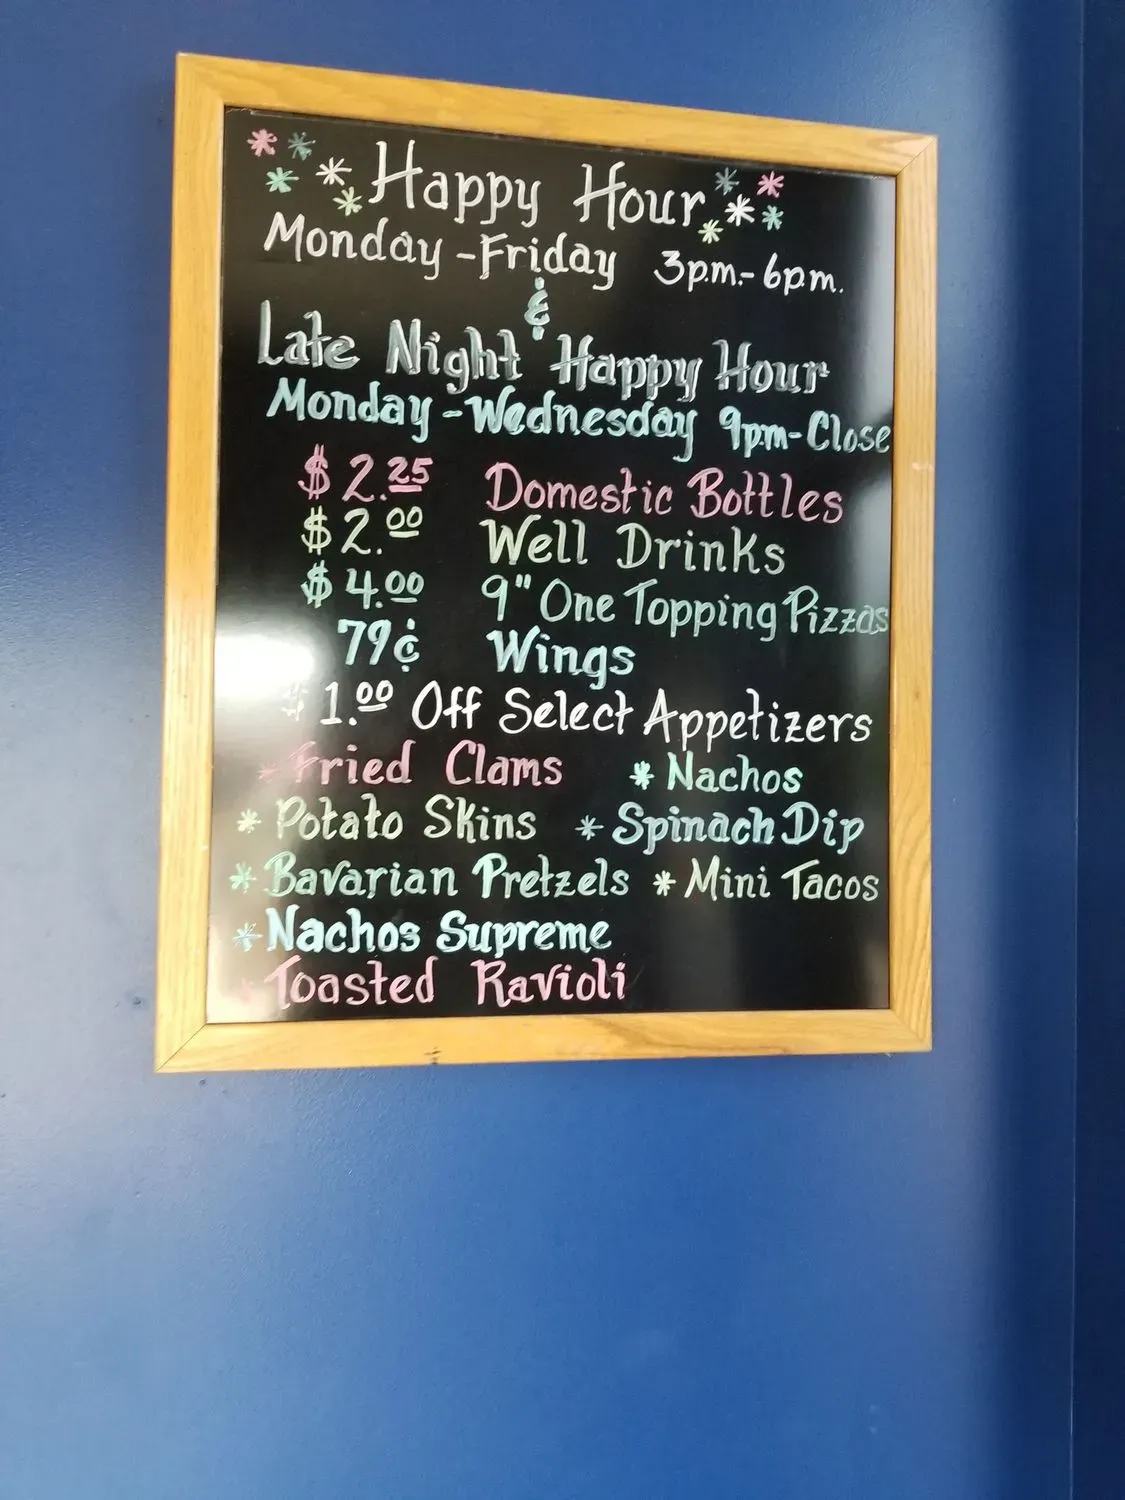 Happy Hour
Monday - Friday 3p.m. - 6p.m.
&
Late Night Happy Hour
Monday - Wednesday 9pm - Close
$2.25 Domestic Bottles
$2.00 Well Drinks
$4.00 9" One Topping Pizzas
79¢ Wings
$1.00 Off Select Appetizers
* Fried Clams * Nachos
* Potato Skins * Spinach Dip
* Bavarian Pretzels * Mini Tacos
* Nachos Supreme
* Toasted Ravioli